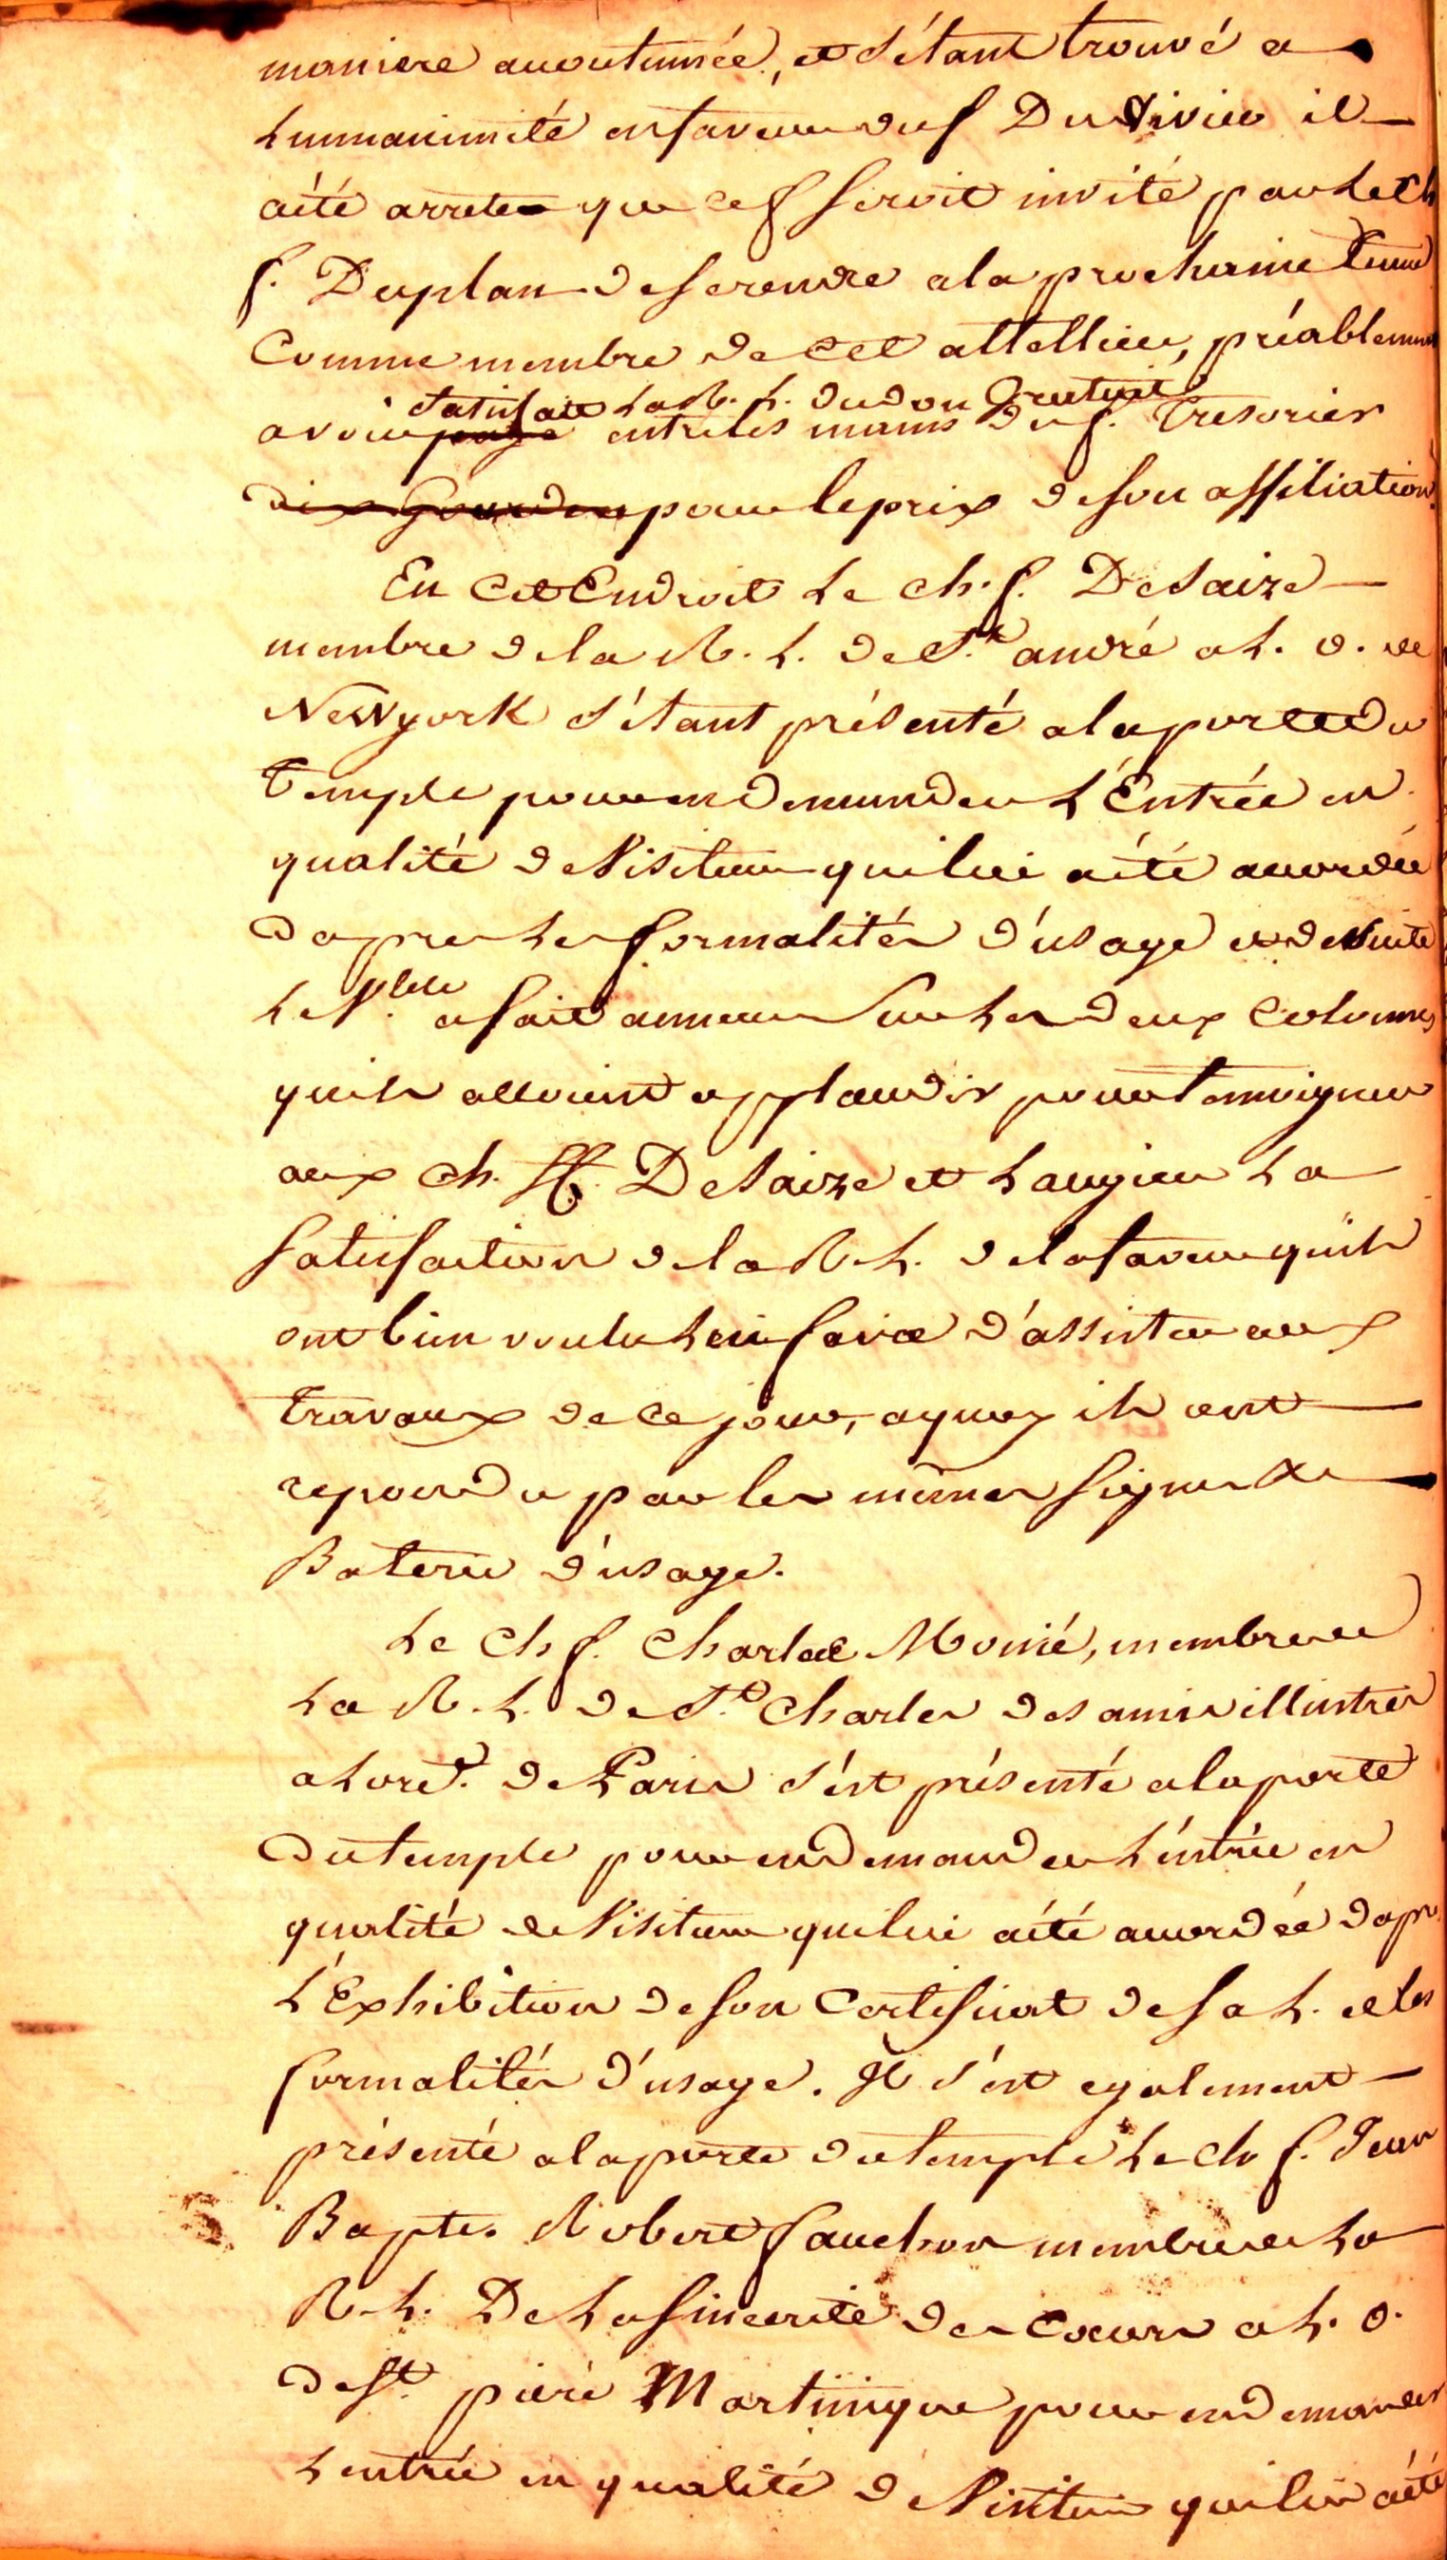 maniere accoutumée, et s'étant trouvé a
Lunnanimité enfaveur du f Du Vivier il
aété arreté que ce f seroit invité par Le ch
f. Duplan de se rendre ala prochaine tenue
Comme membre de cet attellier, préablement
satisfait La R. L. du don Gratuit
avoir payé entre les mains du f. Tresorier
dix Gourdes pour le prix de son affiliation.
En Cet Endroit Le ch. f. Desaize
membre de la R. L. de St. andré a L. o. de
NeWyork s'étant présenté ala porte du
Temple pour en demander L'Entrée en
qualité de Visiteur qui lui aété accordée
dapres Les formalités d'usage et de suite
Le Vble a fait annoncer Sur Les deux Colonnes
quils alloient applaudir pour temoigner
aux ch. ff. Desaize et Laugier La
satisfaction de la R. L. de la faveur quils
ont bien voulu Lui faire d'assister aux
travaux de ce jour, aquoy ils ont
repondu par les mêmes signes &
Baterie d'usage.
Le Ch f. Charles Monié, membre de
La R. L. de St. Charles des amis illustres
a Lord. de Paris s'est présenté ala porte
du temple pour en demander L'entrée en
qualité de Visiteur qui lui aété accordée dapr
L'Exhibition de son Certificat de sa L. et les
formalités d'usage. Il s'est egalement
présenté ala porte du temple Le Ch f. Jean
Bapte. Robert Fauchon membre de La
R. L. De La Sincerité des Coeurs a L. o.
de St. piere Martinique pour en demander
Lentrée en qualité de Visiteur qui lui aété